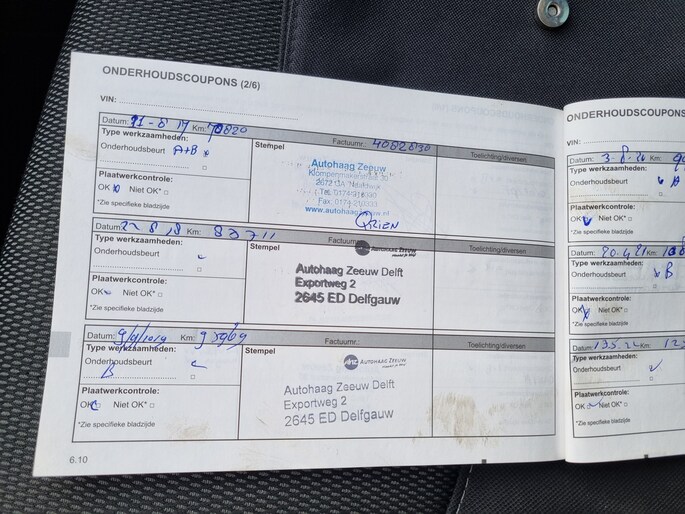 ONDERHOUDSCOUPONS (2/6)
VIN:
Datum: 21-8 17 Km: 70820
Factuurnr.: 4082630
Toelichting/diversen
Type werkzaamheden:
Onderhoudsbeurt A+B
Stempel
Autohaag Zeeuw
Klompenmakerstraat
Fax: 0174
www.autohaagzeeuw.nl
Plaatwerkcontrole:
OK Niet OK*
*Zie specifieke bladzijde
Datum: 22-8 18 Km: 83711
Factuurnr.:
Toelichting/diversen
Type werkzaamheden:
Onderhoudsbeurt
Stempel
AUTOHAAG ZEEUW
Autohaag Zeeuw Delft
Exportweg 2
2645 ED Delfgauw
Plaatwerkcontrole:
OK Niet OK*
*Zie specifieke bladzijde
Datum: 9/9/2019 Km:
Factuurnr.:
Toelichting/diversen
Type werkzaamheden:
Onderhoudsbeurt
B
Stempel
AUTOHAAG ZEEUW
Autohaag Zeeuw Delft
Exportweg 2
2645 ED Delfgauw
Plaatwerkcontrole:
OK Niet OK*
*Zie specifieke bladzijde
6.10
ONDERHOUDSCOUPONS
VIN:
Datum: 3-8-20 Km:
Type werkzaamheden:
Onderhoudsbeurt A
Plaatwerkcontrole:
OK Niet OK*
*Zie specifieke bladzijde
Datum: 20.4.21 Km:
Type werkzaamheden:
Onderhoudsbeurt B
Plaatwerkcontrole:
OK Niet OK*
*Zie specifieke bladzijde
Datum: Km:
Type werkzaamheden:
Onderhoudsbeurt
Plaatwerkcontrole:
OK Niet OK*
*Zie specifieke bladzijde